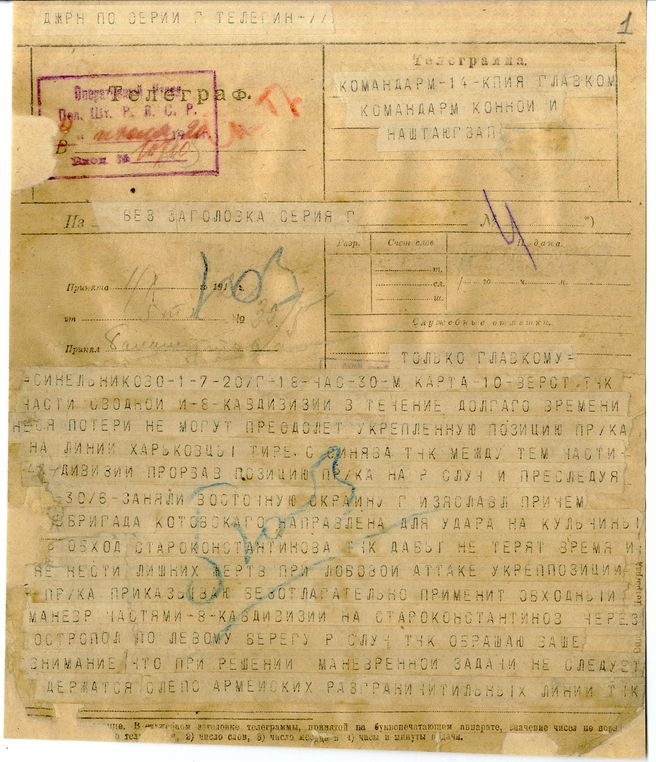 ДЖРН ПО СЕРИИ Г ТЕЛЕГИН-77
1
Телеграф.
Телеграмма.
Пол. Шт. Р. В. С. Р.
В
Вход №
КОМАНДАРМ-14-КПИЯ ГЛАВКОМ
КОМАНДАРМ КОННОЙ И
НАШТАЮГЗАП
Из БЕЗ ЗАГОЛОВКА СЕРИЯ Г № 4 ")
Разр. Счет слов Подана.
т.
сл. го ч. м.
ш.
Принята го 191 г.
от №
Принял
103
Служебные отметки.
ТОЛЬКО ГЛАВКОМУ=
=СИНЕЛЬНИКОВО-1-7-20/Г-18-ЧАС-30-М КАРТА-10-ВЕРСТ ТЧК
ЧАСТИ СВОДНОЙ И-8-КАВДИВИЗИИ В ТЕЧЕНИЕ ДОЛГАГО ВРЕМЕНИ
НЕСЯ ПОТЕРИ НЕ МОГУТ ПРЕОДОЛЕТ УКРЕПЛЕННУЮ ПОЗИЦИЮ ПР/КА
НА ЛИНИИ ХАРЬКОВЦЫ ТИРЕ С СИНЯВА ТЧК МЕЖДУ ТЕМ ЧАСТИ-
ДИВИЗИИ ПРОРВАВ ПОЗИЦИЮ ПР/КА НА Р СЛУЧ И ПРЕСЛЕДУЯ
30/6-ЗАНЯЛИ ВОСТОЧНУЮ ОКРАИНУ Г ИЗЯСЛАВЛ ПРИЧЕМ
БРИГАДА КОТОВСКАГО НАПРАВЛЕНА ДЛЯ УДАРА НА КУЛЬЧИНЫ
В ОБХОД СТАРОКОНСТАНТИНОВА ТЧК ДАБЫ НЕ ТЕРЯТ ВРЕМЯ И
НЕ НЕСТИ ЛИШНИХ ЖЕРТВ ПРИ ЛОБОВОЙ АТТАКЕ УКРЕППОЗИЦИИ
ПР/КА ПРИКАЗЫВАЮ БЕЗОТЛАГАТЕЛЬНО ПРИМЕНИТ ОБХОДНЫЙ
МАНЕВР ЧАСТЯМИ-8-КАВДИВИЗИИ НА СТАРОКОНСТАНТИНОВ ЧЕРЕЗ
ОСТРОПОЛ ПО ЛЕВОМУ БЕРЕГУ Р СЛУЧ ТЧК ОБРАЩАЮ ВАШЕ
ВНИМАНИЕ ЧТО ПРИ РЕШЕНИИ МАНЕВРЕННОЙ ЗАДАЧИ НЕ СЛЕДУЕТ
ДЕРЖАТСЯ СЛЕПО АРМЕЙСКИХ РАЗГРАНИЧИТИЛЬНЫХ ЛИНИИ ТЧК
В служебном заголовке телеграммы, принятой на буквопечатающем аппарате, значение чисел
2) число слов, 3) число месяца и 4) часы и минуты подачи.